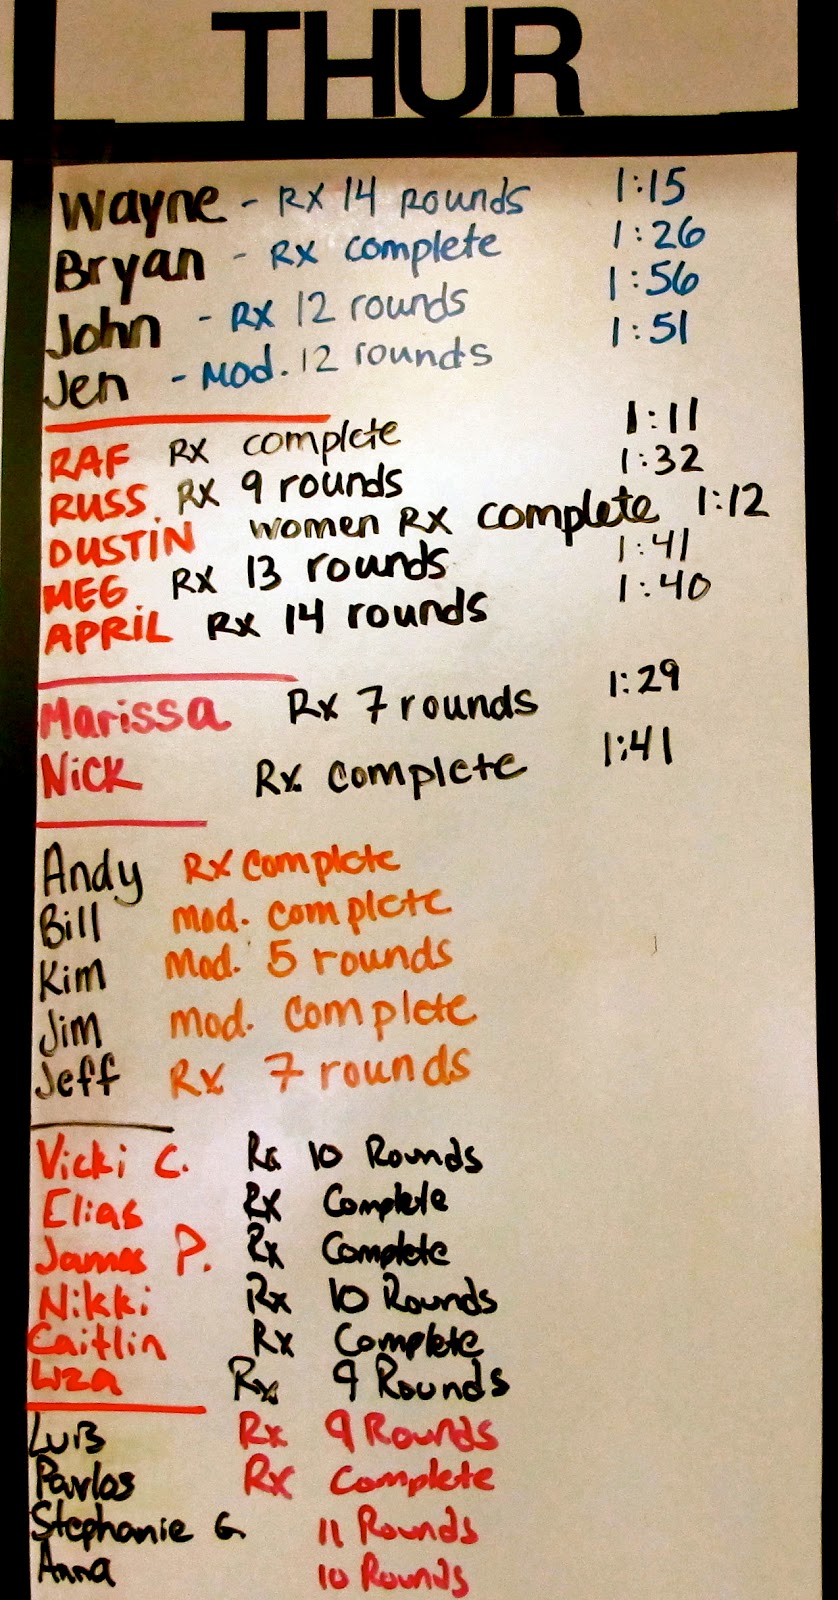 THUR
Wayne - Rx 14 Rounds 1:15
Bryan - Rx complete 1:26
John - Rx 12 rounds 1:56
Jen - Mod. 12 rounds 1:51
RAF Rx complete 1:11
RUSS. Rx 9 rounds 1:32
DUSTIN women Rx complete 1:12
MEG. Rx 13 rounds 1:41
APRIL Rx 14 rounds 1:40
Marissa Rx 7 rounds 1:29
Nick Rx complete 1:41
Andy Rx complete
Bill Mod. complete
Kim Mod. 5 rounds
Jim Mod. complete
Jeff Rx 7 rounds
Vicki C. Rx 10 Rounds
Elias Rx Complete
James P. Rx Complete
Nikki Rx 10 Rounds
Caitlin Rx Complete
Liza Rx 9 Rounds
Luis Rx 9 Rounds
Pavlos Rx Complete
Stephanie G. 11 Rounds
Anna 10 Rounds